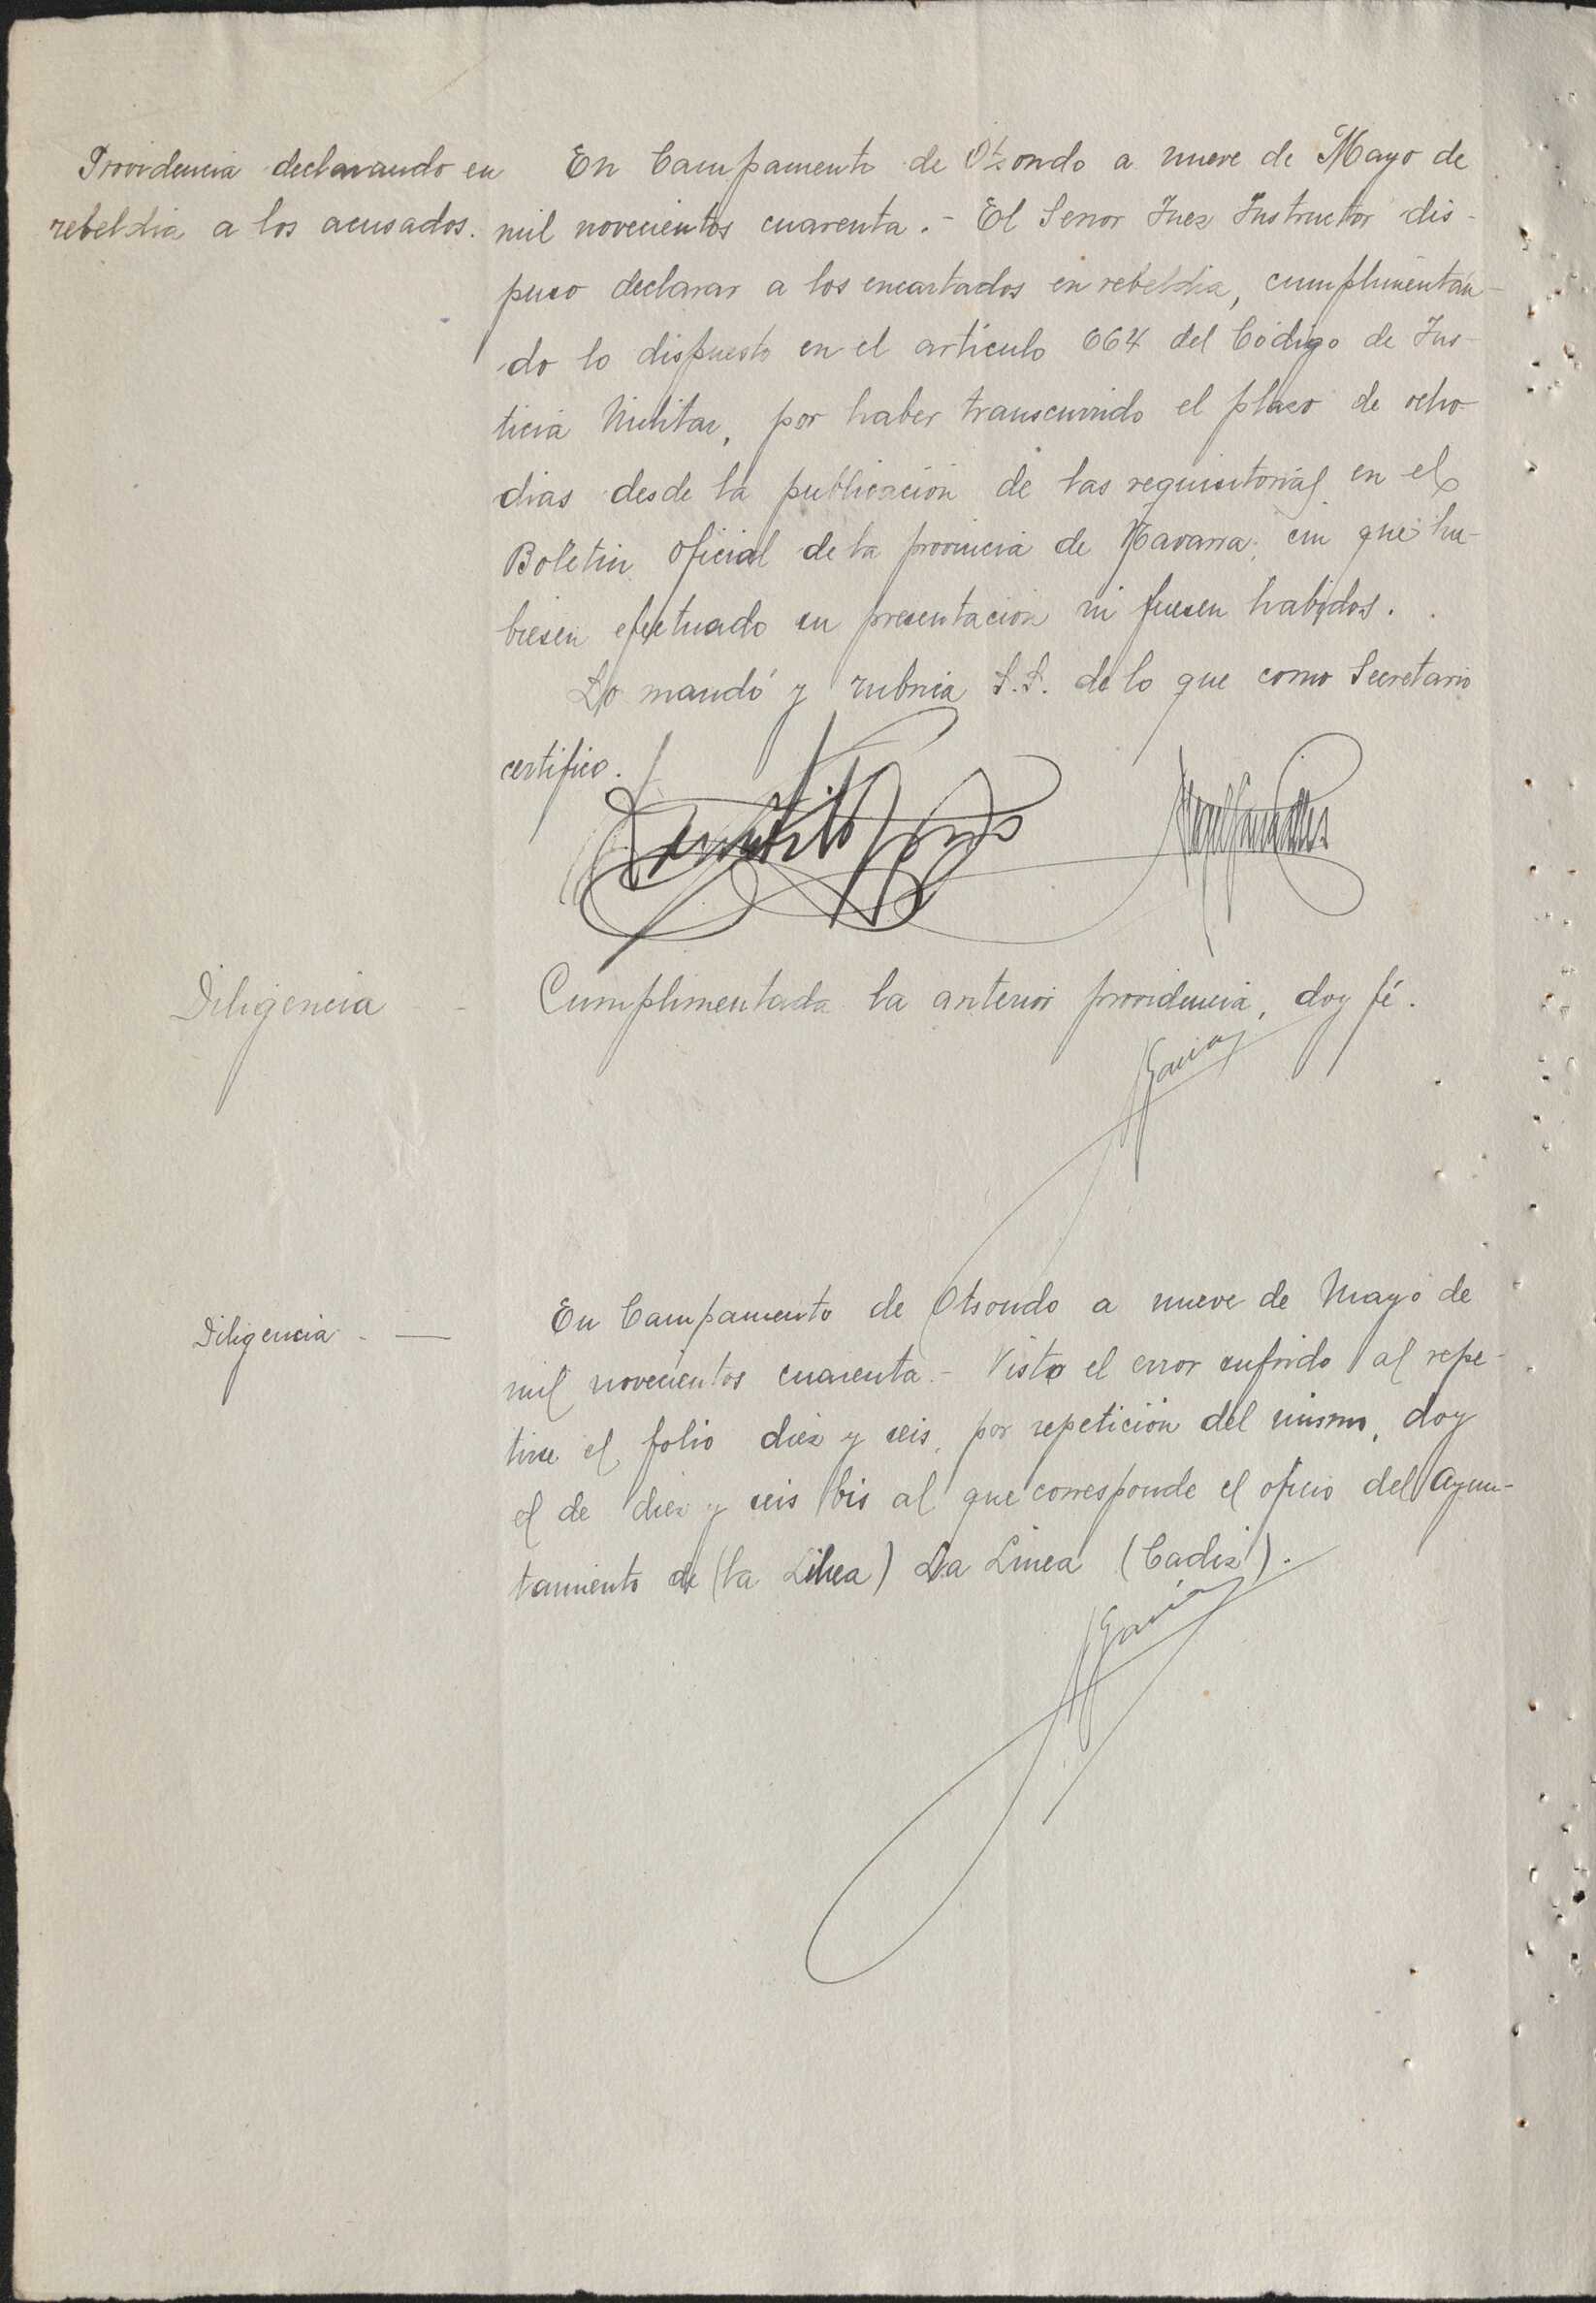 Providencia declarando en
rebeldia a los acusados.
En Campamento de Otsondo a nueve de Mayo de
mil novecientos cuarenta.- El Senor Juez Instructor dis-
puso declarar a los encartados en rebeldia, cumplimentan-
do lo dispuesto en el artículo 664 del Código de Jus-
ticia Militar, por haber transcurrido el plazo de ocho
dias desde la publicación de las requisitorias en el
Boletin Oficial de la provincia de Navarra, sin que hu-
biesen efectuado su presentacion ni fuesen habidos.
Lo mandó y rubrica S.S. de lo que como Secretario
certifico.
Diligencia -
Cumplimentada la anterior providencia, doy fé.
García
Diligencia - —
En Campamento de Otsondo a nueve de Mayo de
mil novecientos cuarenta.- Visto el error sufrido al repe-
tirse el folio diez y seis, por repetición del mismo, doy
el de diez y seis bis al que corresponde el oficio del Ayun-
tamiento de (la Linea) La Linea (Cadiz).
García